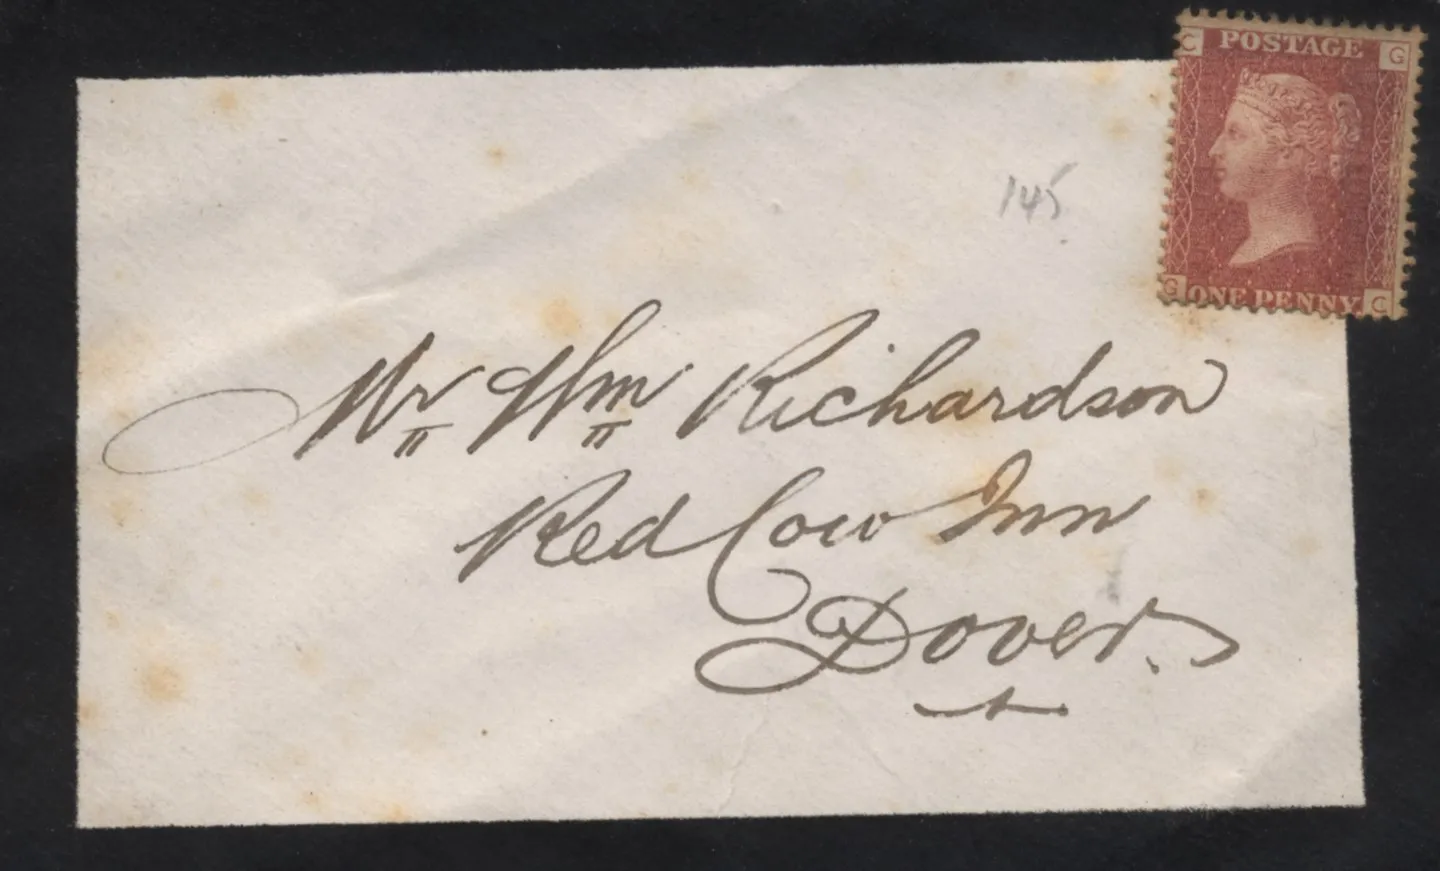 C POSTAGE G
G ONE PENNY C
145
Mr Wm Richardson
Red Cow Inn
Dover.